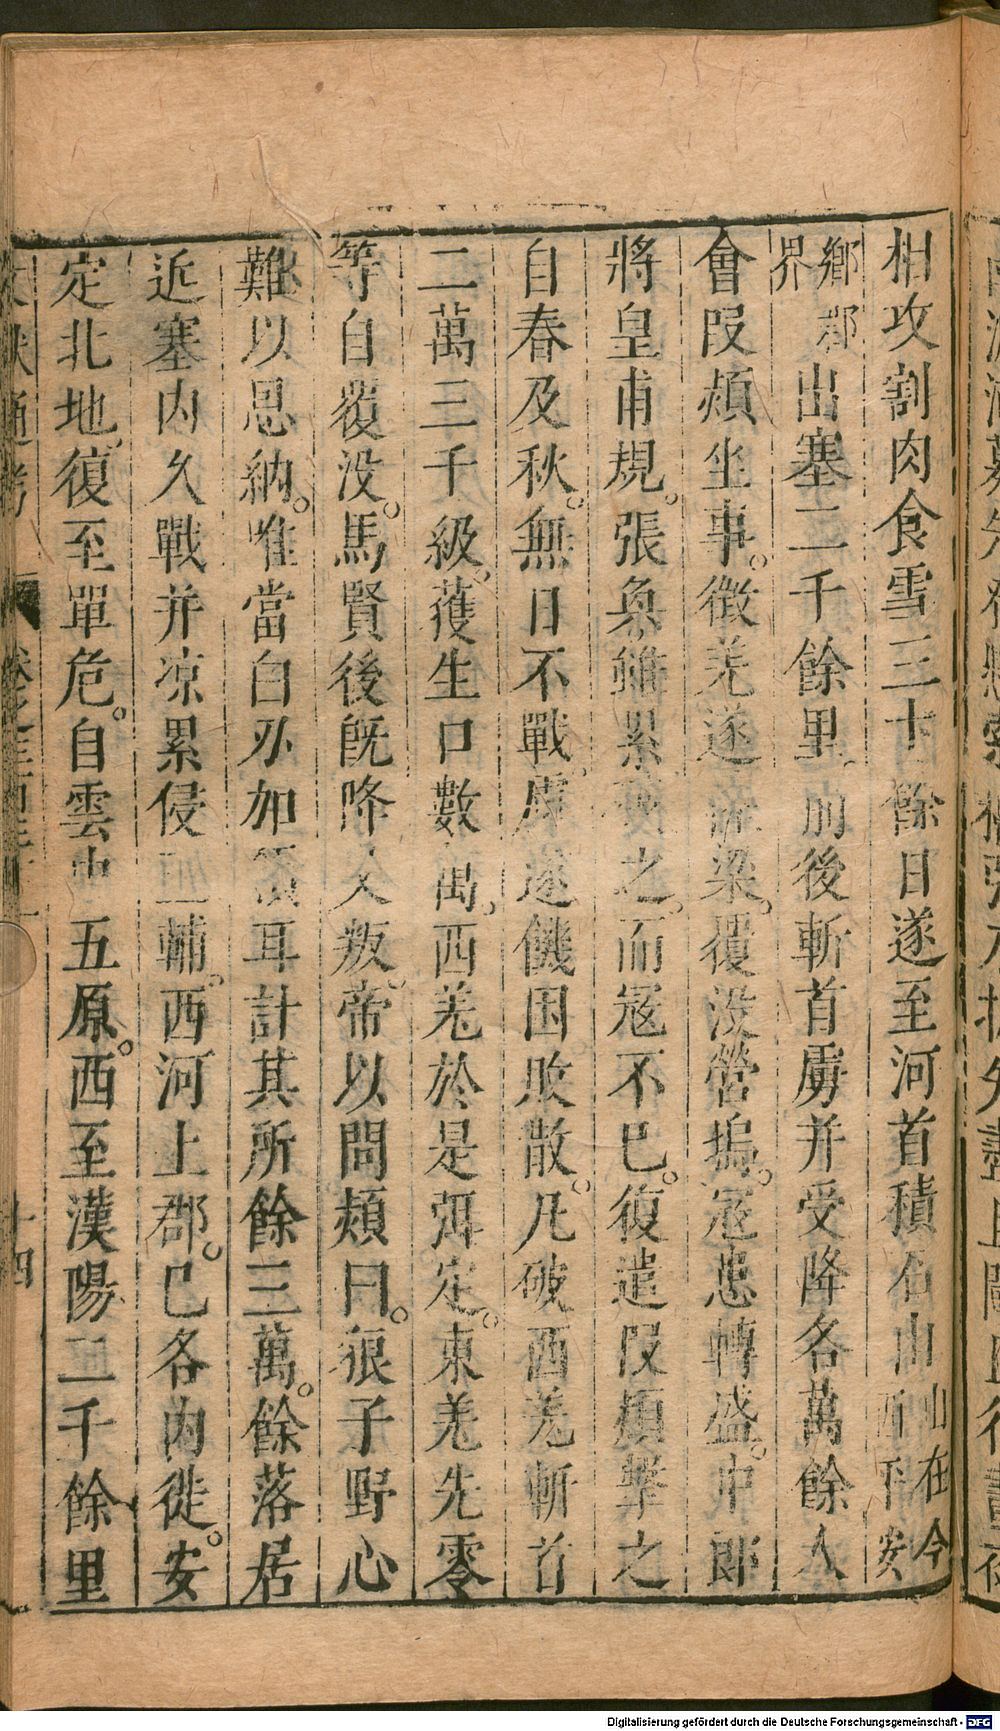 相攻割肉食雪三十餘日遂至河首積石山山在今西平安
鄉郡界出塞二千餘里前後斬首虜并受降各萬餘人
會段熲坐事。徵羌遂梁。覆没營塢。寇患轉盛。中郎
將皇甫規。張奐雖累破之。而寇不已。復遣段熲擊之
自春及秋。無日不戰。虜遂饑困敗散。凡破西羌斬首
二萬三千級。獲生口數萬。西羌於是弭定。東羌先零
等自覆没。馬賢後既降又叛。帝以問熲曰。狼子野心
難以恩納。唯當白刃加耳計其所餘三萬。餘落居
近塞内久戰并凉累侵三輔。西河上郡。已各内徙。安
定北地。復至單危。自雲中五原。西至漢陽二千餘里
Digitalisierung gefördert durch die Deutsche Forschungsgemeinschaft - DFG